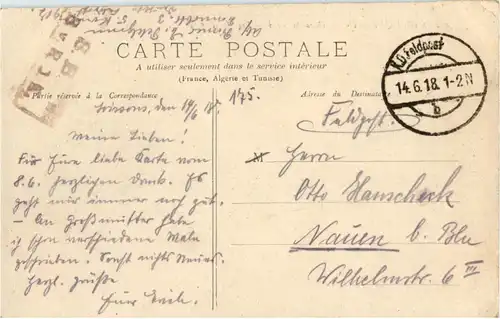 CARTE POSTALE
A utiliser seulement dans le service intérieur
(France, Algérie et Tunisie)
Partie réservée à la Correspondance
Adresse du Destinataire
K.D. Feldpost
14.6.18. 1-2N
b
Soissons, den 14/6 18.
175.
Feldpost.
Meine Lieben!
Für Eure liebe Karte vom
8.6. herzlichen Dank. Es
geht mir immer noch gut.
– An Großmutter habe
ich schon verschiedene Male
geschrieben. Sonst nichts Neues.
Herzl. Grüße
Euer
Herrn
Otto Hanscheck
Nauen b. Bln
Wilhelmstr. 6 III